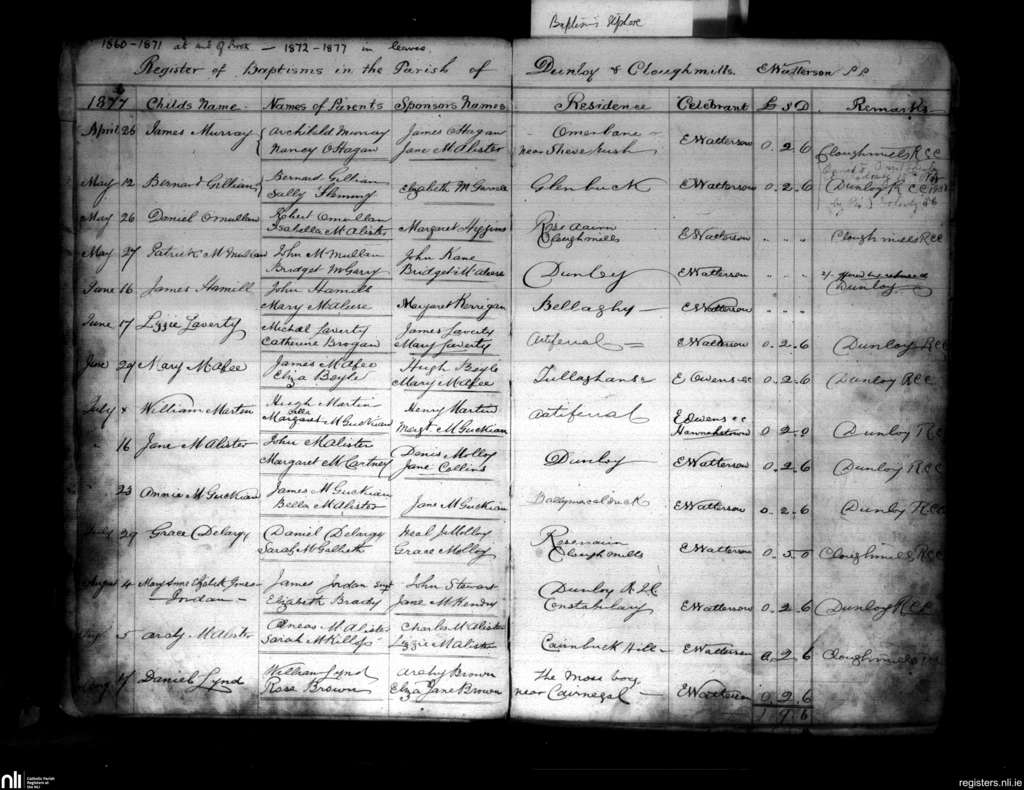 Baptisms
1860-1871 at end of Book - 1872-1877 in leaves.
Register of Baptisms in the Parish of Dunloy & Cloughmills. E Watterson P.P
1877 Childs Name Names of Parents Sponsors Names Residence Celebrant £ S D Remarks
April 26 James Murray Archibald Murray James O Hagan Omerbane
Nancy O Hagan Jane M Alister near Slieve E Watterson 0.2.6 Cloughmills R C C
May 12 Bernard Gillian Bernard Gillian
Sally Fleming Elizabeth Glenbuck E Watterson 0.2.6 Dunloy R C C
May 26 Daniel O mullan Robert O mullan
Isabella M Alister Margaret Higgins Cloughmills E Watterson " " " Cloughmills R C C
May 27 Patrick M mullan John M mullan John Kane
Bridget McGerry Bridget Dunloy E Watterson " " " Dunloy
June 16 James Hamill John Hamill
Mary Margaret Kerrigan Bellaghy E Watterson " " "
June 17 Lizzie Laverty Michal Laverty James Laverty
Catherine Brogan Mary Laverty Artiferral E Watterson 0.2.6 Dunloy R C C
June 29 Mary M Afee James M Afee Hugh Boyle
Eliza Boyle Mary M Afee Tullaghans E Owens cc 0.2.6 Dunloy R C C
July William Martin Hugh Martin Henry Martin Artiferral E Owens c c
Margaret M Guckian Margt M Guckian Hannahstown 0 2.0 Dunloy R C C
" 16 Jane M Alister John M Alister Denis Molloy
Margaret M Cartney Jane Collins Dunloy E Watterson 0.2.6 Dunloy R C C
" 23 Annie M Guckian James M Guckian
Bella M Alister Jane M Guckian E Watterson 0.2.6 Dunloy R C C
July 29 Grace Delargy Daniel Delargy Neal Molloy
Sarah Grace Molloy Cloughmills E Watterson 0.5.0 Cloughmills R C C
August 4 Mary Anne James Jordan John Stewart Dunloy R.I.C
Jordan Elizabeth Brady Jane M Kendry Constabulary E Watterson 0.2.6 Dunloy R.C.C
5 Archy M Alister Aeneas M Alister Charles M Alister
Sarah M Killop Lizzie M Alister Cairnbuck Hill E Watterson 0.2.6 Cloughmills
17 Daniel Lynd William Lynd Archy Brown the Moss
Rose Brown Eliza Jane Brown near Cairnegal E Watterson 0.2.6
nli
Catholic Parish
Registers at
the NLI
registers.nli.ie